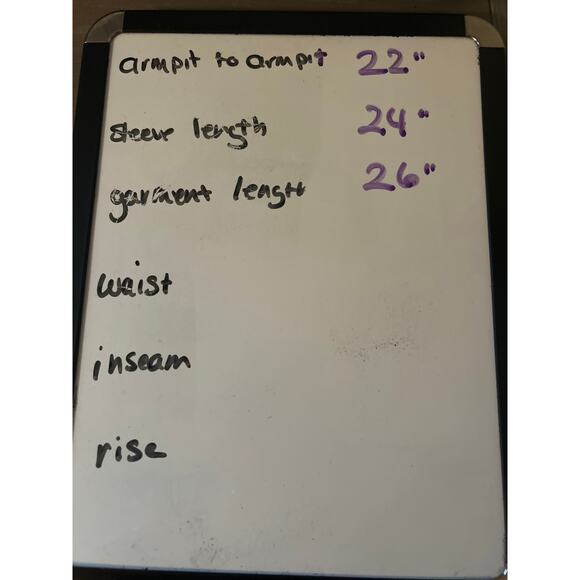 armpit to armpit 22"
sleeve length 24"
garment length 26"
waist
inseam
rise